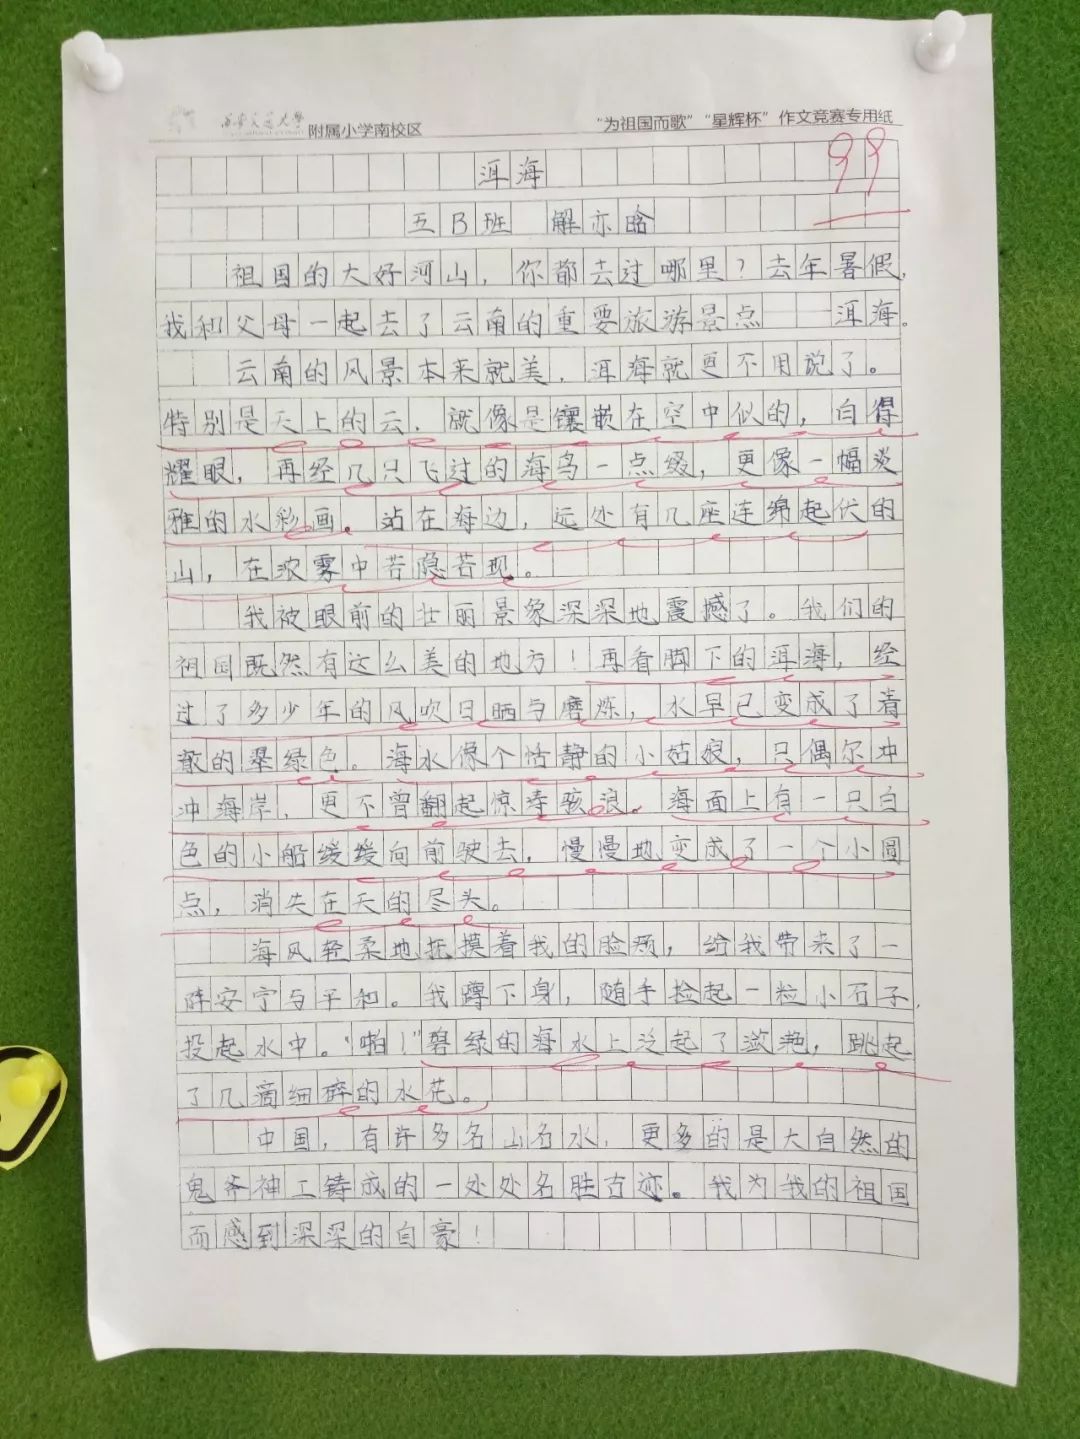 西安交通大学 附属小学南校区 “为祖国而歌”“星辉杯”作文竞赛专用纸
99
洱海
五B班 解亦晗
祖国的大好河山，你都去过哪里？去年暑假，
我和父母一起去了云南的重要旅游景点——洱海。
云南的风景本来就美，洱海就更不用说了。
特别是天上的云，就像是镶嵌在空中似的，白得
耀眼，再经几只飞过的海鸟一点缀，更像一幅淡
雅的水彩画。站在海边，远处有几座连绵起伏的
山，在浓雾中若隐若现。
我被眼前的壮丽景象深深地震撼了。我们的
祖国既然有这么美的地方！再看脚下的洱海，经
过了多少年的风吹日晒与磨炼，水早已变成了着
散的翠绿色。海水像个恬静的小姑娘，只偶尔冲
冲海岸，更不曾翻起惊涛骇浪。海面上有一只白
色的小船缓缓向前驶去，慢慢地变成了一个小圆
点，消失在天的尽头。
海风轻柔地抚摸着我的脸颊，给我带来了一
阵安宁与平和。我蹲下身，随手捡起一粒小石子，
投起水中。“啪！”碧绿的海水上泛起了潋滟，跳起
了几滴细碎的水花。
中国，有许多名山名水，更多的是大自然的
鬼斧神工铸成的一处处名胜古迹。我为我的祖国
而感到深深的自豪！